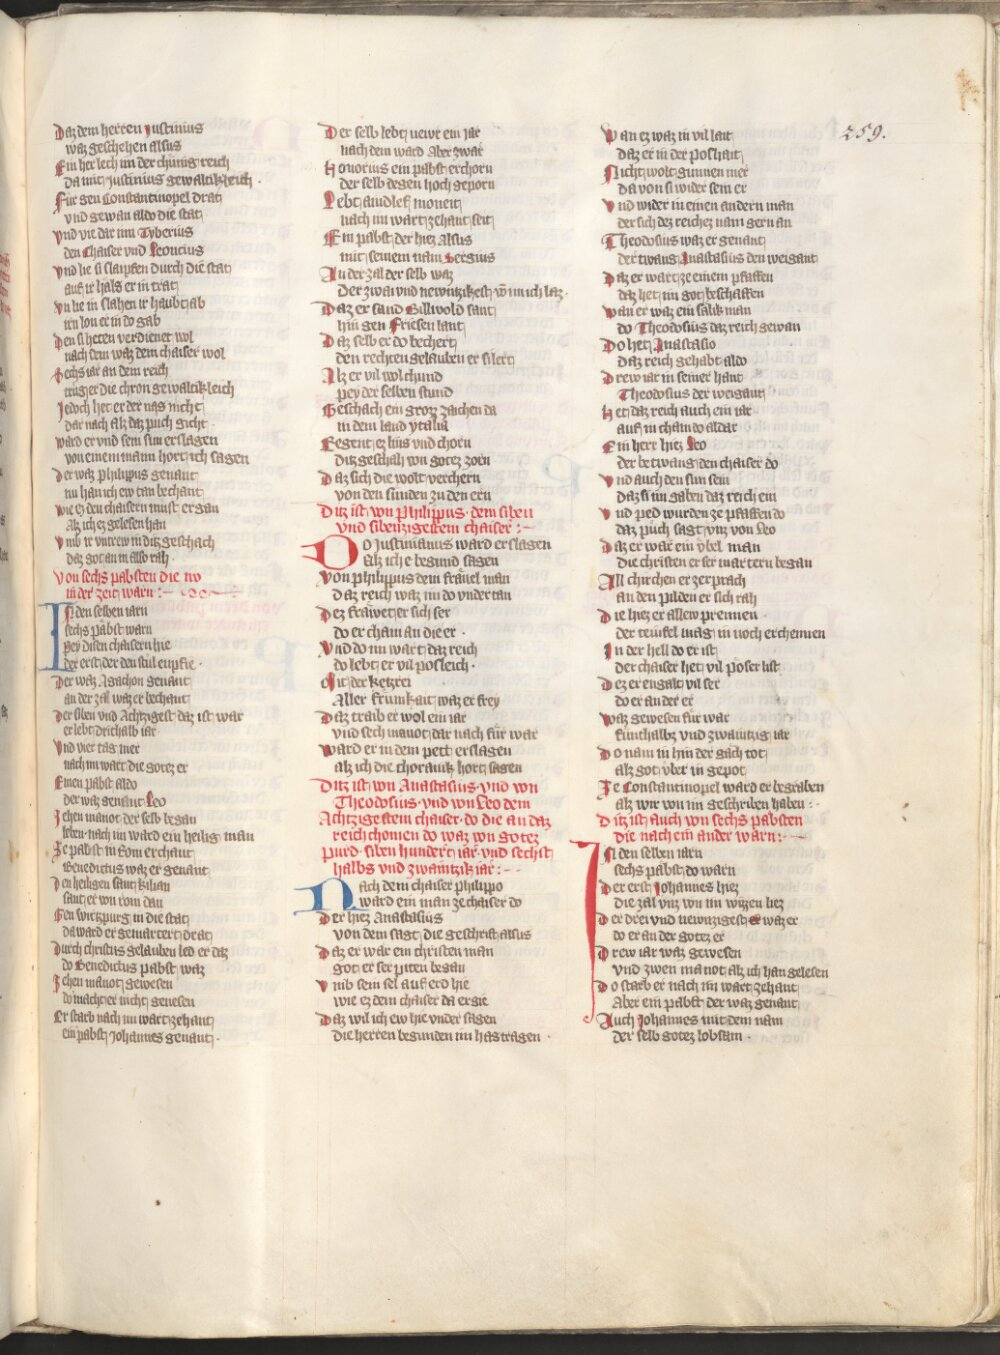 Daz dem herren Justinius
waz geschehen alsus
Ein her lech im der chünig reich
da mit Justinius gewaltikleich
Für gen Constantinopel drat
vnd gewan aldo die stat
Vnd vie dar inn Tyberius
den Chaiser vnd Leoncius
Vnd lie si slaipfen durch die stat
auf ir hals er in trat
Vn lie in slahen ir haubt ab
irn lon er in do gab
Den si heten verdienet wol
nach dem waz dem chaiser wol
Sechs iar an dem reich
trug er die chron gewaltikleich
Jedoch het er der nas nicht
dar nach alz daz puch gicht
ward er vnd sein sun erslagen
von einem mann hort ich sagen
Der waz Philippus genant
nu han ich ew tan bechant
wie ez den chaisern must ergan
Alz ich ez gelesen han
Vmb ir vntrew in ditz geschach
daz got an in also rach
Von sechs pabsten die nv
in der zeit warn
In den selben iarn
sechs pabst warn
pey disen chaisern hie
der erst der den stul enpfie
Der waz Agachon genant
an der zal waz er bechant
Der siben vnd Achtzigest daz ist war
er lebt drithalb iar
Vnd vier tag mer
nach im wart die gotez er
Einen pabst aldo
der waz genant Leo
Zehen manot der selb began
leben nach im ward ein heilig man
Ze pabst in Rom erchant
Benedictus waz er genant
Den heiligen sant Kilian
sant er von rom dan
Gen wirtzpurg in die stat
da ward er gemartert drat
Durch christus gelauben led er daz
do Benedictus pabst waz
Zehen manot gewesen
do macht er nicht genesen
Er starb nach im wart zehant
ein pabst Johannes genant
Der selb lebt newr ein jar
nach dem ward Aber zwar
Honorius ein pabst erchorn
der selb degen hoch geporn
Lebt aindlef moneit
nach im wart zehant seit
Ein pabst der hiez Alsus
mit seinem nam Sergius
An der zal der selb waz
Der zwai vnd newntzikest von im ich laz
Daz er sand Billwold sant
hin gen Friesen lant
Daz selb er do bechert
den rechten gelauben er si lert
Alz er vil wol chund
pey der selben stund
Geschach ein grozz zaichen da
in dem land ytalia
Regent ez lins vnd chorn
ditz geschah von gotez zorn
Daz sich die wolt verchern
von den sünden zu den ern
Ditz ist von Philippus dem siben
vnd sibentzigestem chaiser
Do Justinianus ward erslagen
Selz ich e begund sagen
Von Philippus dem fräuel man
daz reich waz im do vndertan
Dez fräwet er sich ser
do er cham an die er
Vnd do im wart daz reich
do lebt er vil posleich
Mit der ketzrei
Aller frümkait waz er frey
Daz traib er wol ein iar
vnd sech manot dar nach für war
Ward er in dem pett erslagen
alz ich die chronik hort sagen
Ditz ist von Anastasius vnd von
Theodosius vnd von Leo dem
Achtzigestem chaiser do die an daz
reich chomen do waz von gotez
purd siben hundert iar vnd sechst
halbs vnd zwaintzik iar
Nach dem chaiser Philippo
ward ein man ze chaiser do
Der hiez Anastasius
von dem sagt die geschrift alsus
Daz er war ein christen man
got er ser piten began
Vmb sein sel auf erd hie
wie ez dem chaiser da ergie
Daz wil ich ew hie vnder sagen
die herren begunden im has tragen
Wan ez waz in vil lait
daz er in der poshait
Nicht wolt gunnen mer
da von si wider sein er
Vnd wider in einen andern man
der sich dez reichez nam gern an
Theodosius waz er genant
der twang Anastasius den weigant
Daz er wart ze einem pfaffen
daz het im got beschaffen
Wan er waz ein salik man
do Theodosius daz reich gewan
Do het Anastasio
daz reich gehabt aldo
Drew iar in seiner hant
Theodosius der weigant
Het daz reich auch ein iar
auf in cham do aldar
Ein herr hiez Leo
der betwang den chaiser do
Vnd auch den sun sein
daz si im gaben daz reich ein
Vnd ped wurden ze pfaffen do
daz puch sagt vnz von Leo
Daz er wär ein vbel man
die christen er ser martern began
All chirchen er zerprach
an den pilden er sich rach
Die hiez er allew prennen
der teufel mag in noch erchennen
In der hell do er ist
der chaiser het vil poser list
Dez er engalt vil ser
do er an der er
Waz gewesen für war
fünfthalbz vnd zwaintzig iar
Do nam in hin der gäch tot
alz got vber in gepot
Ze Constantinopel ward er begraben
alz wir von im geschriben haben
Ditz ist auch von sechs pabsten
die nach ein ander warn
In den selben iarn
sechs pabst do warn
Der erst Johannes hiez
die zal vnz von im wizzen liez
Der drei vnd newntzigest waz er
do er an der gotez er
Drew iar waz gewesen
vnd zwen manot alz ich han gelesen
Do starb er nach im wart zehant
Aber ein pabst der waz genant
Auch Johannes mit dem nam
der selb gotez lobsam
259.